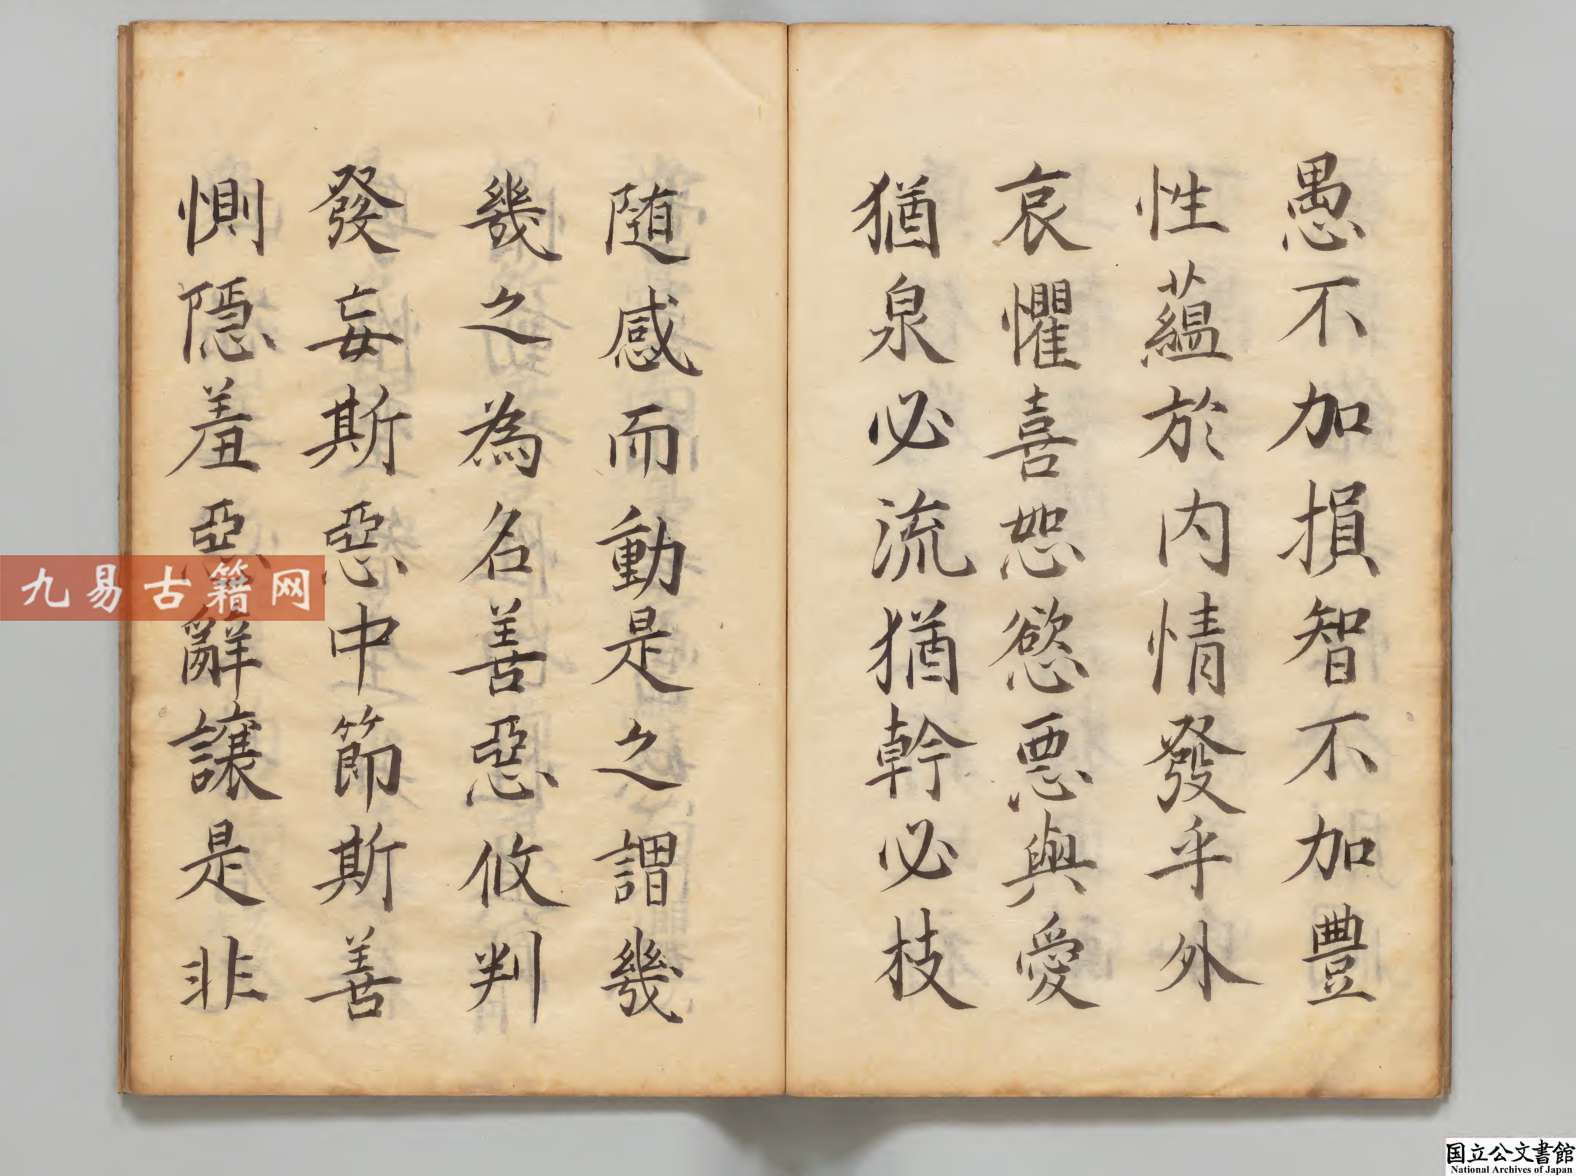 愚不加損智不加豊
性蘊於内情發乎外
哀懼喜恕慾悪與愛
猶泉必流猶幹必枝
随感而動是之謂幾
幾之為名善惡攸判
發妄斯惡中節斯善
惻隱羞惡辭讓是非
九易古籍网
国立公文書館
National Archives of Japan